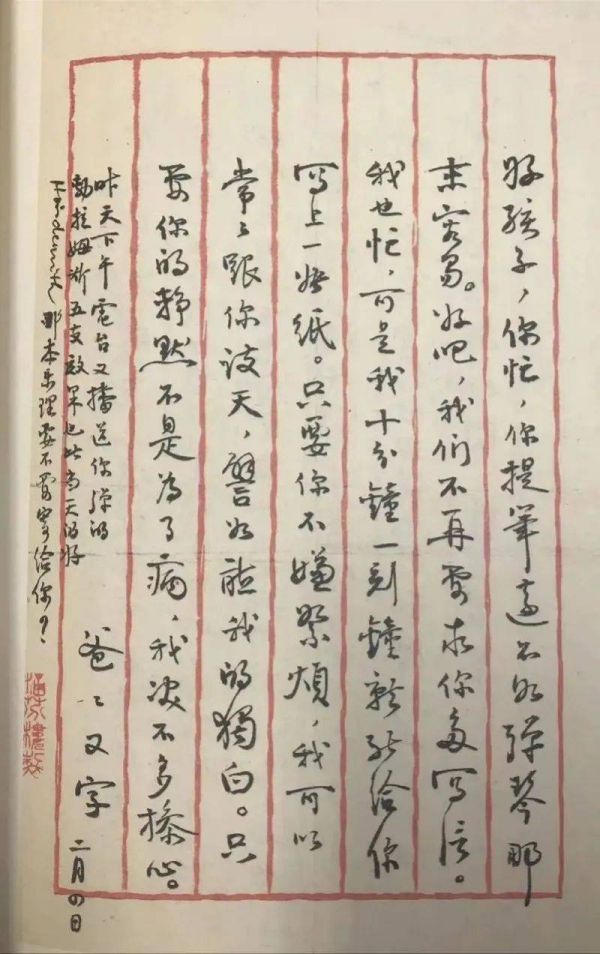 好孩子，你忙，你提筆遠不如彈琴那
末容易。好吧，我们不再要求你多写信。
我也忙，可是我十分鐘一刻鐘就能给你
写上一張纸。只要你不嫌絮煩，我可以
常々跟你谈天，譬如聽我的獨白。只
要你的静默不是為了病，我决不多操心。
爸々又字 二月四日
昨天下午電台又播送你彈的
勃拉姆斯五支 效果也比当天的好
那本乐理要不要寄给你？